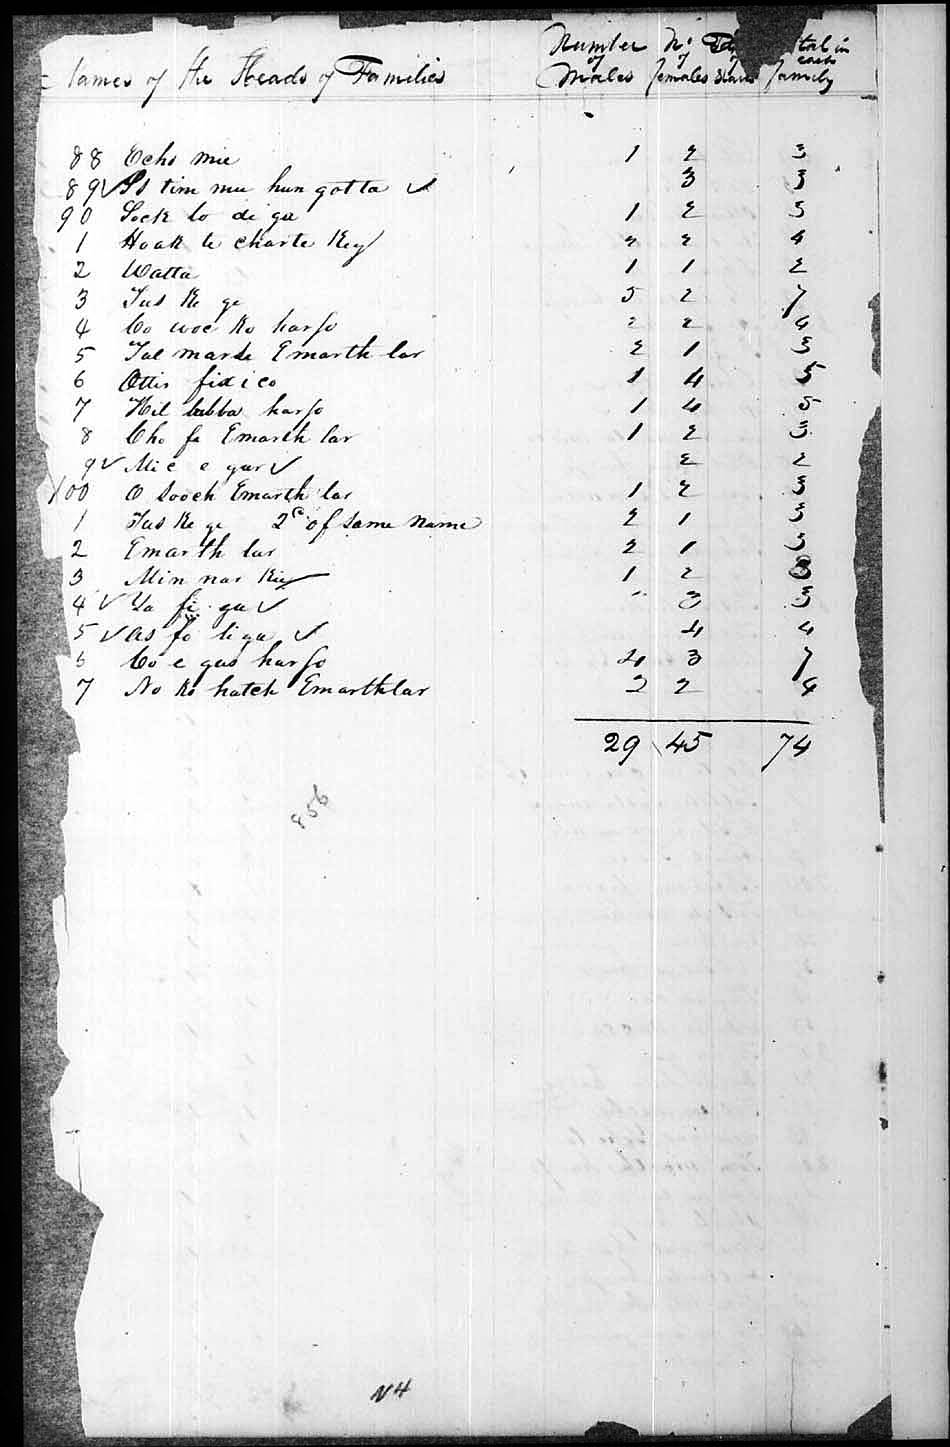 Number No tal in
of of of each
Names of the Heads of Families Males females Slaves family
88 Echo mie 1 2 3
89 ✓ Is tim mu hun gotta ✓ 3 3
90 Sock lo di ga 1 2 3
1 Hoak te charte Key 2 2 4
2 Watta 1 1 2
3 Tus Ke ge 5 2 7
4 Co woc Ko harjo 2 2 4
5 Tal marse Emarth lar 2 1 3
6 Ottis fixico 1 4 5
7 Hil lubba harjo 1 4 5
8 Cho fe Emarth lar 1 2 3
9 ✓ Mic e gar ✓ 2 2
100 O sooch Emarth lar 1 2 3
1 Tus Ke ge 2d of same name 2 1 3
2 Emar th lar 2 1 3
3 Min nar Key 1 2 3
4 ✓ Ya fi ga ✓ " 3 3
5 ✓ As fo liga ✓ 4 4
6 Co e gus harjo 4 3 7
7 No Ko hatch Emarthlar 2 2 4
29 45 74
856
N4